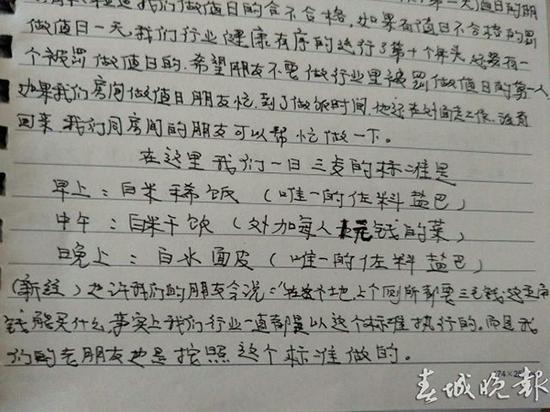 我们做值日的合不合格,如果有值日不合格的罚
做值日一天,我们行业健康有序的进行了第十个年头,还没有一
个被罚做值日的,希望朋友不要做行业里被罚做值日的第一人
如果我们房间做值日朋友忙,到了做饭时间,他还在对面走工作,没有
回来,我们同房间的朋友可以帮忙做一下。
在这里我们一日三歺的标准是
早上:白米稀饭(唯一的佐料盐巴)
中午:白米干饭(外加每人1元钱的菜)
晚上:白水面皮(唯一的佐料盐巴)
也许我们的朋友会说:"在这个地,上个厕所都要三毛钱,这
钱能买什么,事实上我们行业一直都是以这个标准执行的,而且我
们的老朋友也是按照这个标准做的。
春城晚報